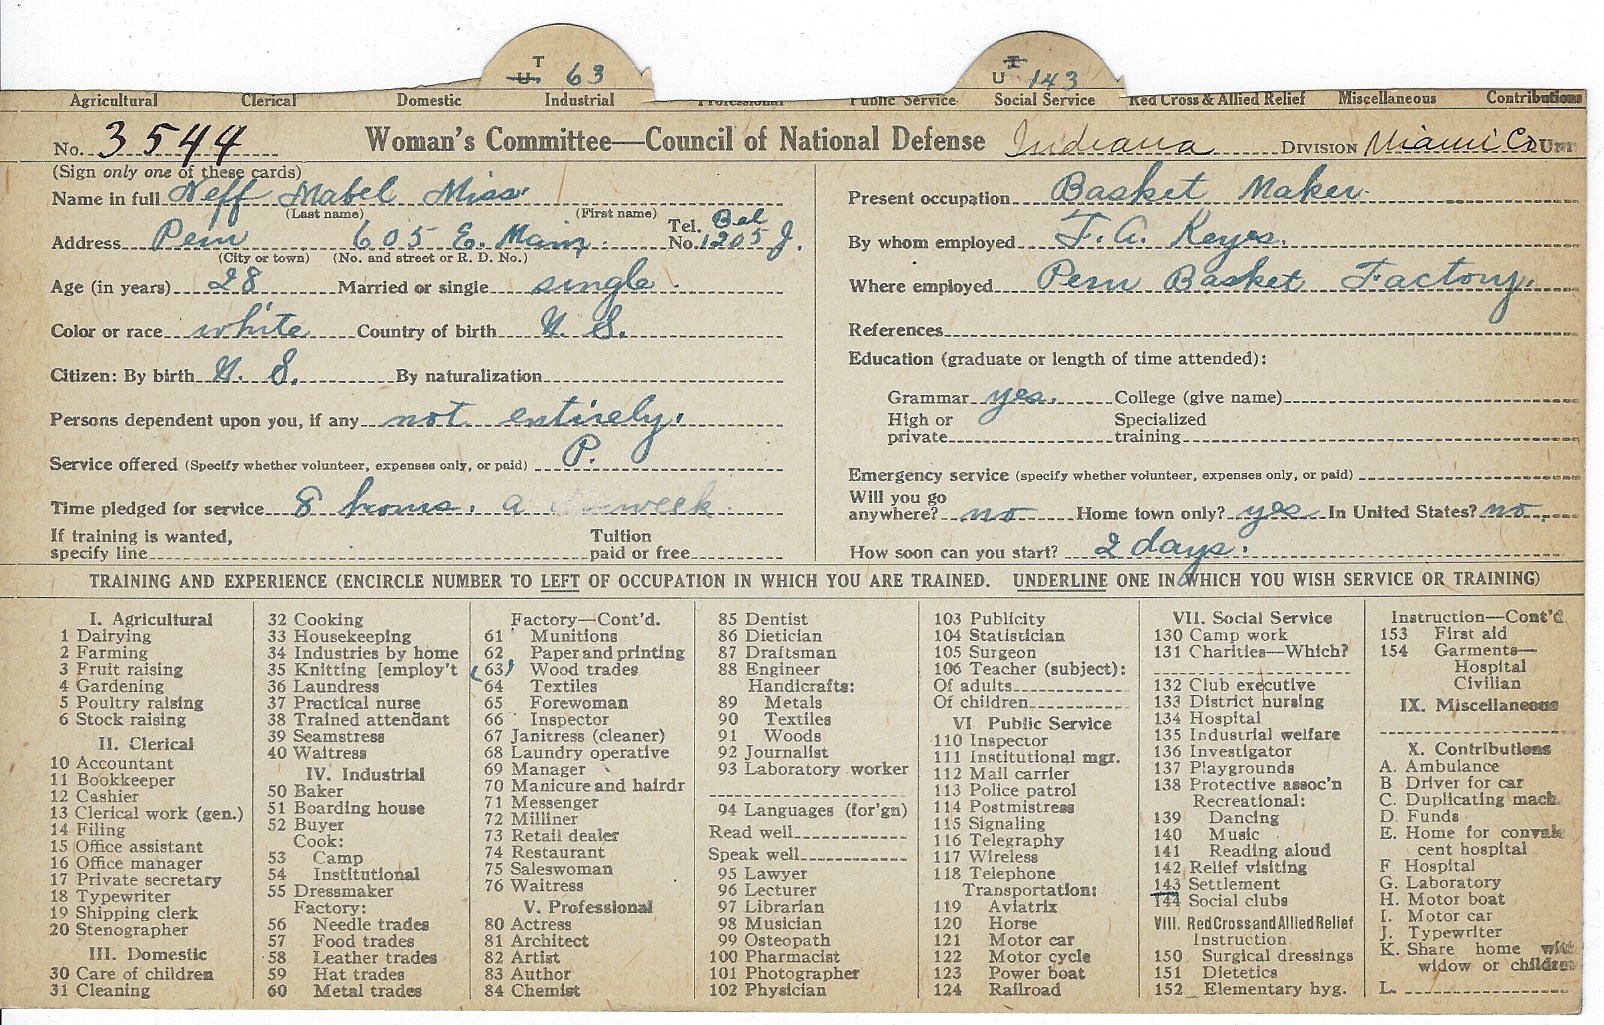 T U. 63
T U 143
Agricultural Clerical Domestic Industrial Professional Public Service Social Service Red Cross & Allied Relief Miscellaneous Contributions
No. 3544 Woman's Committee—Council of National Defense Indiana DIVISION Miami Co UNIT
(Sign only one of these cards)
Name in full Neff Mabel Miss
(Last name) (First name)
Address Peru 605 E. Main. Tel. No. Bel 1205 J.
(City or town) (No. and street or R. D. No.)
Age (in years) 28 Married or single single.
Color or race white Country of birth U. S.
Citizen: By birth U. S. By naturalization
Persons dependent upon you, if any not entirely.
Service offered (Specify whether volunteer, expenses only, or paid) P.
Time pledged for service 8 hours. a week
If training is wanted, Tuition
specify line paid or free
Present occupation Basket Maker.
By whom employed F. A. Keyes.
Where employed Peru Basket Factory.
References
Education (graduate or length of time attended):
Grammar yes. College (give name)
High or Specialized
private training
Emergency service (specify whether volunteer, expenses only, or paid)
Will you go
anywhere? no Home town only? yes In United States? no.
How soon can you start? 2 days.
TRAINING AND EXPERIENCE (ENCIRCLE NUMBER TO LEFT OF OCCUPATION IN WHICH YOU ARE TRAINED. UNDERLINE ONE IN WHICH YOU WISH SERVICE OR TRAINING)
I. Agricultural
1 Dairying
2 Farming
3 Fruit raising
4 Gardening
5 Poultry raising
6 Stock raising
II. Clerical
10 Accountant
11 Bookkeeper
12 Cashier
13 Clerical work (gen.)
14 Filing
15 Office assistant
16 Office manager
17 Private secretary
18 Typewriter
19 Shipping clerk
20 Stenographer
III. Domestic
30 Care of children
31 Cleaning
32 Cooking
33 Housekeeping
34 Industries by home
35 Knitting [employ't
36 Laundress
37 Practical nurse
38 Trained attendant
39 Seamstress
40 Waitress
IV. Industrial
50 Baker
51 Boarding house
52 Buyer
Cook:
53 Camp
54 Institutional
55 Dressmaker
Factory:
56 Needle trades
57 Food trades
58 Leather trades
59 Hat trades
60 Metal trades
Factory—Cont'd.
61 Munitions
62 Paper and printing
(63) Wood trades
64 Textiles
65 Forewoman
66 Inspector
67 Janitress (cleaner)
68 Laundry operative
69 Manager
70 Manicure and hairdr
71 Messenger
72 Milliner
73 Retail dealer
74 Restaurant
75 Saleswoman
76 Waitress
V. Professional
80 Actress
81 Architect
82 Artist
83 Author
84 Chemist
85 Dentist
86 Dietician
87 Draftsman
88 Engineer
Handicrafts:
89 Metals
90 Textiles
91 Woods
92 Journalist
93 Laboratory worker
94 Languages (for'gn)
Read well
Speak well
95 Lawyer
96 Lecturer
97 Librarian
98 Musician
99 Osteopath
100 Pharmacist
101 Photographer
102 Physician
103 Publicity
104 Statistician
105 Surgeon
106 Teacher (subject):
Of adults
Of children
VI Public Service
110 Inspector
111 Institutional mgr.
112 Mail carrier
113 Police patrol
114 Postmistress
115 Signaling
116 Telegraphy
117 Wireless
118 Telephone
Transportation:
119 Aviatrix
120 Horse
121 Motor car
122 Motor cycle
123 Power boat
124 Railroad
VII. Social Service
130 Camp work
131 Charities—Which?
132 Club executive
133 District nursing
134 Hospital
135 Industrial welfare
136 Investigator
137 Playgrounds
138 Protective assoc'n
Recreational:
139 Dancing
140 Music
141 Reading aloud
142 Relief visiting
143 Settlement
144 Social clubs
VIII. Red Cross and Allied Relief
Instruction
150 Surgical dressings
151 Dietetics
152 Elementary hyg.
Instruction—Cont'd
153 First aid
154 Garments—
Hospital
Civilian
IX. Miscellaneous
X. Contributions
A. Ambulance
B Driver for car
C. Duplicating mach.
D. Funds
E. Home for convales
cent hospital
F Hospital
G. Laboratory
H. Motor boat
I. Motor car
J. Typewriter
K. Share home with
widow or children
L.